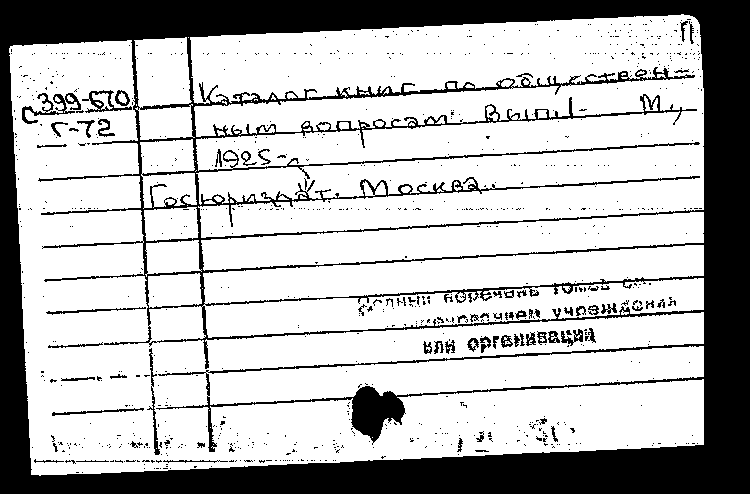 П
С 399-670
Г-72
Каталог книг по обществен-
ным вопросам. Вып.1- М.,
1925-
Госюриздат. Москва.
Полный перечень томов см.
учреждения
или организации